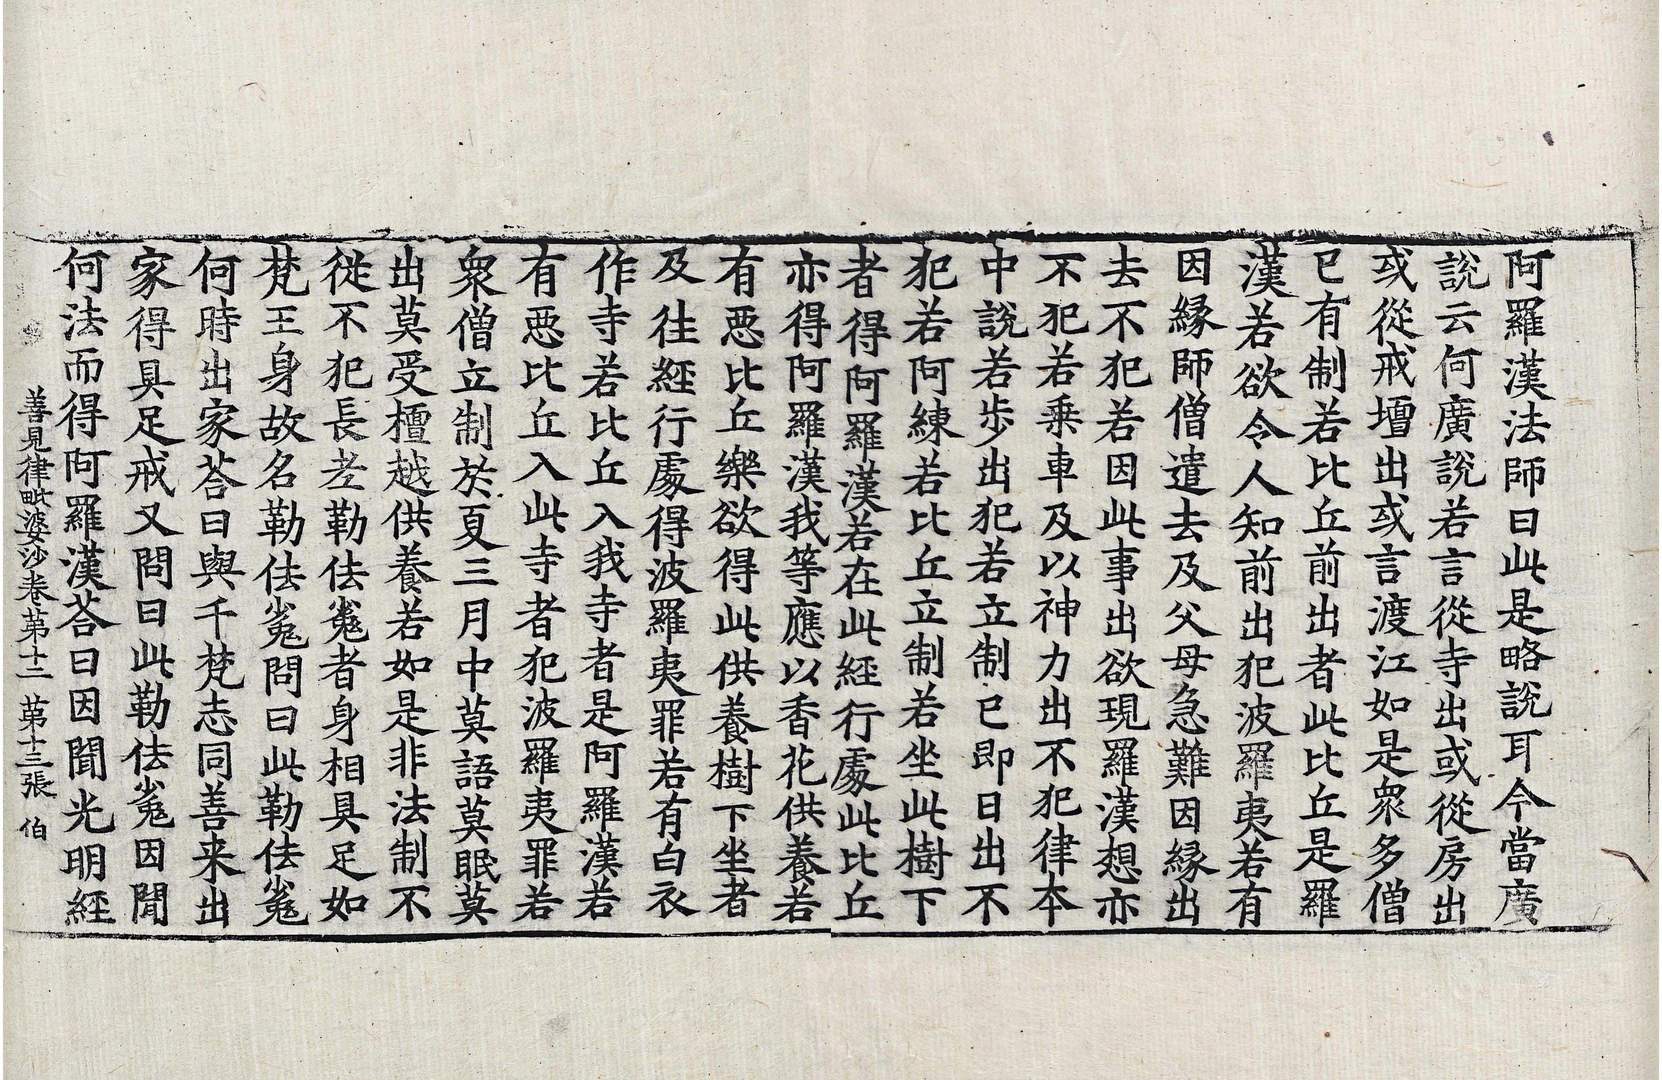 阿羅漢法師曰此是略說耳今當廣
說云何廣說若言從寺出或從房出
或從戒壇出或言渡江如是衆多僧
已有制若比丘前出者此比丘是羅
漢若欲令人知前出犯波羅夷若有
因緣師僧遣去及父母急難因緣出
去不犯若因此事出欲現羅漢想亦
不犯若乘車及以神力出不犯律本
中說若步出犯若立制已即日出不
犯若阿練若比丘立制若坐此樹下
者得阿羅漢若在此經行處此比丘
亦得阿羅漢我等應以香花供養若
有惡比丘樂欲得此供養樹下坐者
及往經行處得波羅夷罪若有白衣
作寺若比丘入我寺者是阿羅漢若
有惡比丘入此寺者犯波羅夷罪若
衆僧立制於夏三月中莫語莫眠莫
出莫受檀越供養若如是非法制不
從不犯長老勒佉㝹者身相具足如
梵王身故名勒佉㝹問曰此勒佉㝹
何時出家荅曰與千梵志同善来出
家得具足戒又問曰此勒佉㝹因聞
何法而得阿羅漢荅曰因聞光明經
善見律毗婆沙卷第十二 第十三張 伯